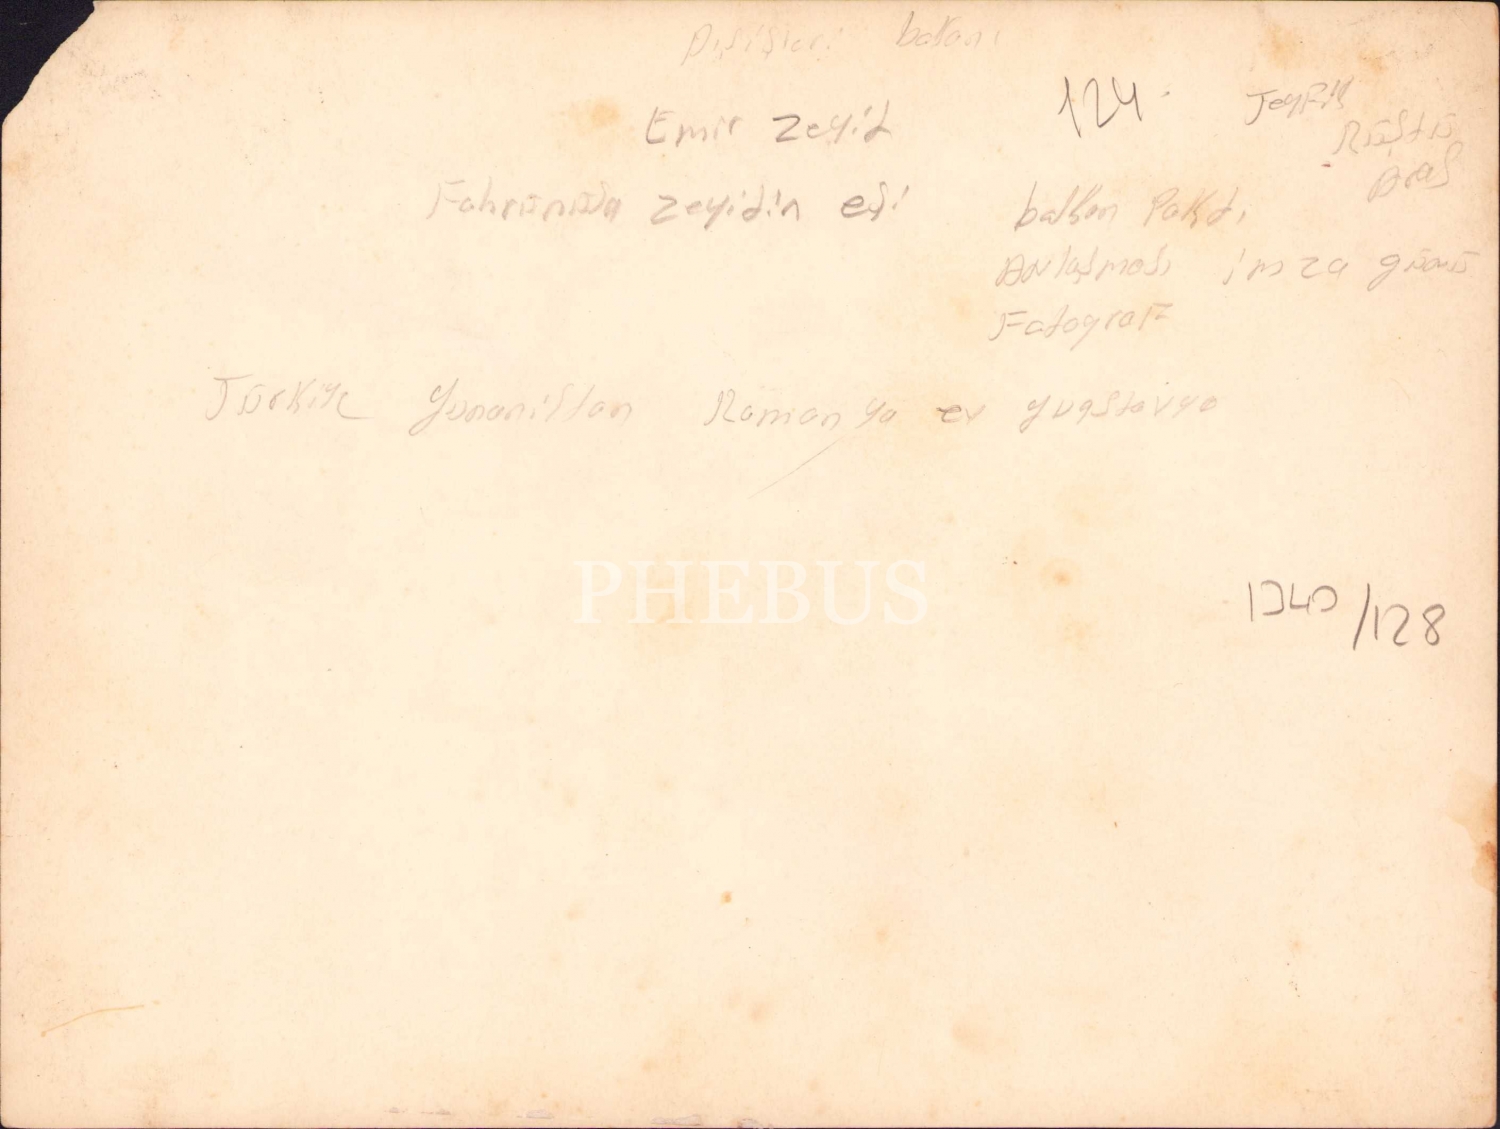 Dışişleri bakanı
Emir Zeyid
124
Teyfik
Rüştü
Aras
Fahrünüsa Zeyidin eşi
balkan Paktı
Anlaşması imza günü
Fotograf
Türkiye Yunanistan Romanya ev yugslavya
PHEBUS
/128